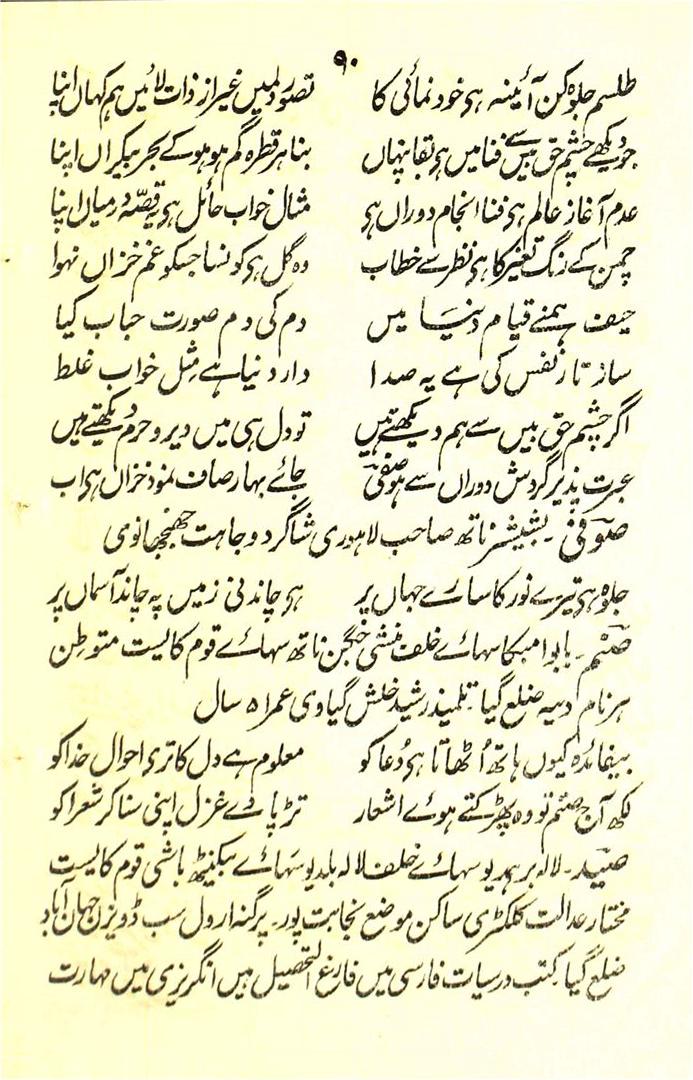 ۹۰
طلسم جلوہ کن آئینہ ہی خود نمائی کا تصور دلمیں غیر از ذات لائیں ہم کہاں اپنا
جو دیکھے چشم حق بیں سے فنا میں ہی بقا پنہاں بنا ہر قطرہ گم ہو ہو کے بحر بیکراں اپنا
عدم آغاز عالم ہی فنا انجام دوراں ہی مثال خواب حائل ہی یہ قصّہ درمیاں اپنا
چمن کے رنگ تغیر کا ہی نظر سے خطاب وہ گل ہی کونسا جسکو غم خزاں نہوا
حیف ہمنے قیام دنیا میں دم کی دم صورت حباب کیا
ساز تار نفس کی ہے یہ صدا دار دنیا ہے مثل خواب غلط
اگر چشم حق بیں سے ہم دیکھتے ہیں تو دل ہی میں دیر و حرم دیکھتے ہیں
عبرت پذیر گردش دوراں سے ہو صفی جائے بہار صاف نمود خزاں ہی اب
صوفی ۔ بشیشر ناتھ صاحب لاہوری شاگرد وجاہت جھنجھانوی
جلوہ ہی تیرے نور کا سارے جہاں پر ہی چاندنی زمیں پہ چاند آسماں پر
صنم ۔ بابو امبکا سہائے خلف منشی جگن ناتھ سہائے قوم کایست متوطن
ہرنام دیہ ضلع گیا ۔ تلمیذ رشید خلش گیاوی عمر ۵۱ سال
بیفائدہ کیوں ہاتھ اُٹھاتا ہی دُعا کو معلوم ہے دل کا تری احوال خدا کو
لکھ آج صنم تو وہ پھڑکتے ہوئے اشعار تڑپا دے غزل اپنی سنا کر شعرا کو
صید ۔ لالہ برہمدیو سہائے خلف لالہ بلدیو سہائے بیکنیٹھ باشی قوم کایست
مختار عدالت کلکٹری ساکن موضع نجابت پور ۔ پرگنہ ارول سب ڈویزن جہان آباد
ضلع گیا کتب درسیات فارسی میں فارغ التحصیل ہیں انگریزی میں مہارت